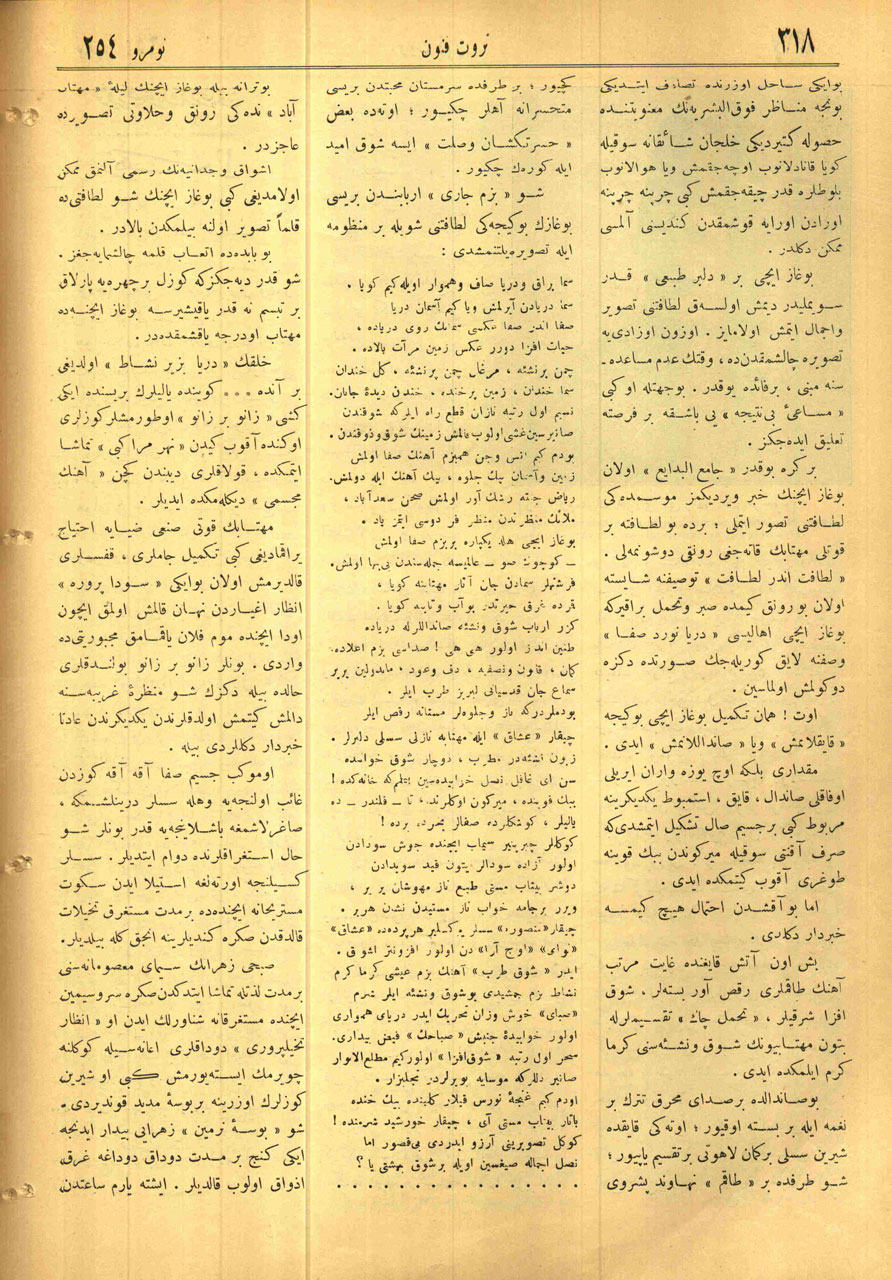 ٣١٨
ثروت فنون
نومرو ٢٥٤
بوایكی ساحل اوزرنده تصادف ایتدیكی
بونجه مناظر فوق‌البشریه‌نك معنویتنده
حصوله كتیردیكی خلجان شائقانه سوقیله
كویا قنادلانوب اوچه‌جقمش ویا هوالانوب
بلوطلره قدر چیقه‌جقمش كبی چرپنه چرپنه
اورادن اورایه قوشمقدن كندیسنی آلمسی
ممكن دكلدر .
بوغاز ایچی بر « دلبر طبیعی » قدر
سویملیدر دیمش اولسه‌ق لطافتنی تصویر
واجمال ایتمش اولامایز . اوزون اوزادی‌یه
تصویره چالشمقدن‌ده ، وقتك عدم مساعده‌ـ
سنه مبنی ، برفائده یوقدر . بوجهتله اوكبی
« مساعیٔ بی‌نتیجه » یی باشقه بر فرصته
تعلیق ایده‌جكز .
بر كره بوقدر « جامع البدایع » اولان
بوغاز ایچنك خبر ویردیكمز موسمده‌كی
لطافتنی تصور ایتملی ؛ برده بو لطافته بر
قوتلی مهتابك قاته‌جغی رونقی دوشونمه‌لی .
« لطافت اندر لطافت » توصیفنه شایسته
اولان بو رونق كیمده صبر وتحمل براقیركه
بوغاز ایچی اهالیسی « دریا نورد صفا »
وصفنه لایق كوریله‌جك صورتده دكزه
دوكولمش اولماسین .
اوت ! همان تكمیل بوغاز ایچی بوكیجه
« قایقلانمش » ویا « صانداللانمش » ایدی .
مقداری بلكه اوچ یوزه واران ایریلی
اوفاقلی صاندال ، قایق ، استمبوط یكدیكرینه
مربوط كبی برجسیم صال تشكیل ایتمشدی‌كه
صرف آقنتی سوقیله میركوندن ببك قوینه
طوغری آقوب كیتمكده ایدی .
اما بو آقشدن احتمال هیچ كیمسه
خبردار دكلدی .
بش اون آتش قایغنده غایت مرتب
آهنك طاقملری رقص آور بسته‌لر ، شوق
افزا شرقیلر ، « تحمل چاك » تقسیم‌لرله
بتون مهتابیونك شوق ونشئه‌سنی كرما
كرم ایلمكده ایدی .
بوصاندالده برصدای محرق تنرك بر
نغمه ایله بر بسته اوقیور ؛ اوته‌كی قایقده
شیرین سسلی بركمان لاهوتی برتقسیم یاپیور ؛
شو طرفده بر « طاقم » نهاوند پشروی
كچیور ؛ بر طرفده سرمستان محبتدن بریسی
متحسرانه آهلر چكیور ؛ اوته‌ده بعض
« حسرتكشان وصلت » ایسه شوق امید
ایله كورەك چكیور .
شو « بزم جاری » اربابندن بریسی
بوغازك بوكیجه‌كی لطافتنی شویله بر منظومه
ایله تصویره یلتنمشدی :
سما براق ودریا صاف وهموار اویله‌كیم كویا .
سما دریادن آیرلمش ویا كیم آسمان دریا
صفا اندر صفا عكسی سمانك روی دریاده ،
حیات افزا دورر عكس زمین مرآت بالاده .
چمن پرنشئه ، مرغان چمن پرنشئه . كل خندان
سما خندان ، زمین پرخنده . خندن دیدهٔ جانان .
نسیم اول رتبه نازان قطع راه ایلركه شوقندن
صانیرسین غشی اولوب دالمش زمینك شوق وذوقندن .
بودم كیم انس وجن همبزم آهنك صفا اولمش
زمین وآسمان بیك جلوه ، بیك آهنك ایله دولمش .
ریاض جنته رشك آور اولمش صحن سعدآباد ،
ملائك منظرندن منظر فردوسی ایتمز یاد .
بوغاز ایچی هله یكپاره بربزم صفا اولمش
ــ كوچوك صو ــ عالمیسه جمله‌سندن بی‌بها اولمش .
فرشته‌لر سمادن جان آتار مهتابنه كویا ،
قرده غرق حیرتدر بوآب وتابه كویا .
كزر ارباب شوق ونشئه صانداللرله دریاده
طنین انداز اولور هی هی ! صداسی بزم اعلاده .
كمان ، قانون ونصفیه ، دف وعود ، ماندولین بربر
سماع جان قدسیانی لبریز طرب ایلر .
بودملردركه ناز وجلوه‌لر مستانه رقص ایلر
چیقار « عشاق » ایله مهتابه نازلی سسلی دلبرلر .
زبون نشئه‌در مطرب ، دوچار شوق خواننده
سن ای غافل نصل خرابیده‌سین بیتلم‌كه خانه‌كده !
ببك قوینده ، میركون اوكلرنده ، تا ــ قلندر ــ ده
یالیلر ، كوشكلرده صفالر بحرده برده !
كوكللر چیرپینیر سیماب ایچنده جوش سودادن
اولور آزاده سودالر بیتون قید سویدادن
دوشر بیتاب مستی طبع ناز مهوشان بر بر ،
ویرر برجامه خواب ناز مستیدن نشان هربر .
چیقار « منصور » سسلر یوكسلیر هرپرده‌ده « عشاق »
« نوای » « اوج آرا » دن اولور افزونتر اشواق .
ایدر « شوق طرب » آهنك بزم عیشی كرما كرم
نشاط بزم جمشیدی بوشوق ونشئه ایلر شرم
« صبای » خوش وزان تحریك ایدر دریای همواری
اولور خوابیدهٔ جنبش « صباحك » فیض بیداری .
سحر اول رتبه « شوق‌افزا » اولوركیم مطلع‌الانوار
صانیر دللركه موسایه بویرلردر تجلیزار .
اودم كیم غنچهٔ نورس قیلار كلبنده بیك خنده
باتار بیتاب مستی آی ، چیقار خورشید شرمنده !
كوكل تصویرینی آرزو ایدردی بی‌قصور اما
نصل اجماله صیغسین اویله برشوق بهشتی یا ؟
. . . . . . . . . . . . . . .
بوترانه بیله بوغاز ایچنك لیلهٔ « مهتاب
آباد » نده‌كی رونق وحلاوتی تصویرده
عاجزدر .
اشواق وجدانیه‌نك رسمی آلنمق ممكن
اولامدیغی كبی بوغاز ایچنك شو لطافتی‌ده
قلماً تصویر اولنه بیلمكدن بالادر .
بو بابده‌ده اتعاب قلمه چالشمایه‌جغز .
شو قدر دیه‌جكزكه كوزل برچهره‌یه پارلاق
بر تبسم نه قدر یاقیشیرسه بوغاز ایچنه‌ده
مهتاب اودرجه یاقشمقده‌در .
خلقك « دریا بزیر نشاط » اولدیغی
بر آنده . . . كوینده یالیلرك بریسنده ایكی
كشی « زانو بر زانو » اوطورمشلر كوزلری
اوكنده آقوب كیدن « نهر مراكبی » تماشا
ایتمكده ، قولاقلری دیبندن كچن « آهنك
مجسمی » دیكله‌مكده ایدیلر .
مهتابك قوتی صنعی ضیایه احتیاج
براقمادیغی كبی تكمیل جاملری ، قفسلری
قالدیرمش اولان بوایكی « سودا پروره »
انظار اغیاردن نهان قالمش اولمق ایچون
اودا ایچنده موم فلان یاقمامق مجبوریتی‌ده
واردی . بونلر زانو بر زانو بولندقلری
حالده بیله دكزك شو منظرهٔ غریبه‌سنه
دالمش كیتمش اولدقلرندن یكدیكرندن عادتا
خبردار دكللردی بیله .
اوموكب جسیم صفا آقه آقه كوزدن
غائب اولنجه‌یه وهله سسلر درینلشمكه ،
صاغرلاشمغه باشلاینجه‌یه قدر بونلر شو
حال استغراقلرنده دوام ایتدیلر . سسلر
كسیلنجه اورته‌لغه استیلا ایدن سكوت
مستریحانه ایچنده‌ده برمدت مستغرق تخیلات
قالدقدن صكره كندیلرینه انجق كله بیلدیلر .
صبحی زهرانك سیمای معصومانه‌سنی
برمدت لذتله تماشا ایتدكدن صكره سروسیمین
ایچنده مستغرقانه شناورلك ایدن او « انظار
تخیلپروری » دوداقلری اعانه‌سیله كوكلنه
چویرمك ایسته‌یورمش كبی او شیرین
كوزلرك اوزرینه بربوسهٔ مدید قوندیردی .
شو « بوسهٔ نرمین » زهرایی بیدار ایدنجه
ایكی كنج بر مدت دوداق دوداغه غرق
اذواق اولوب قالدیلر . ایشته یارم ساعتدن